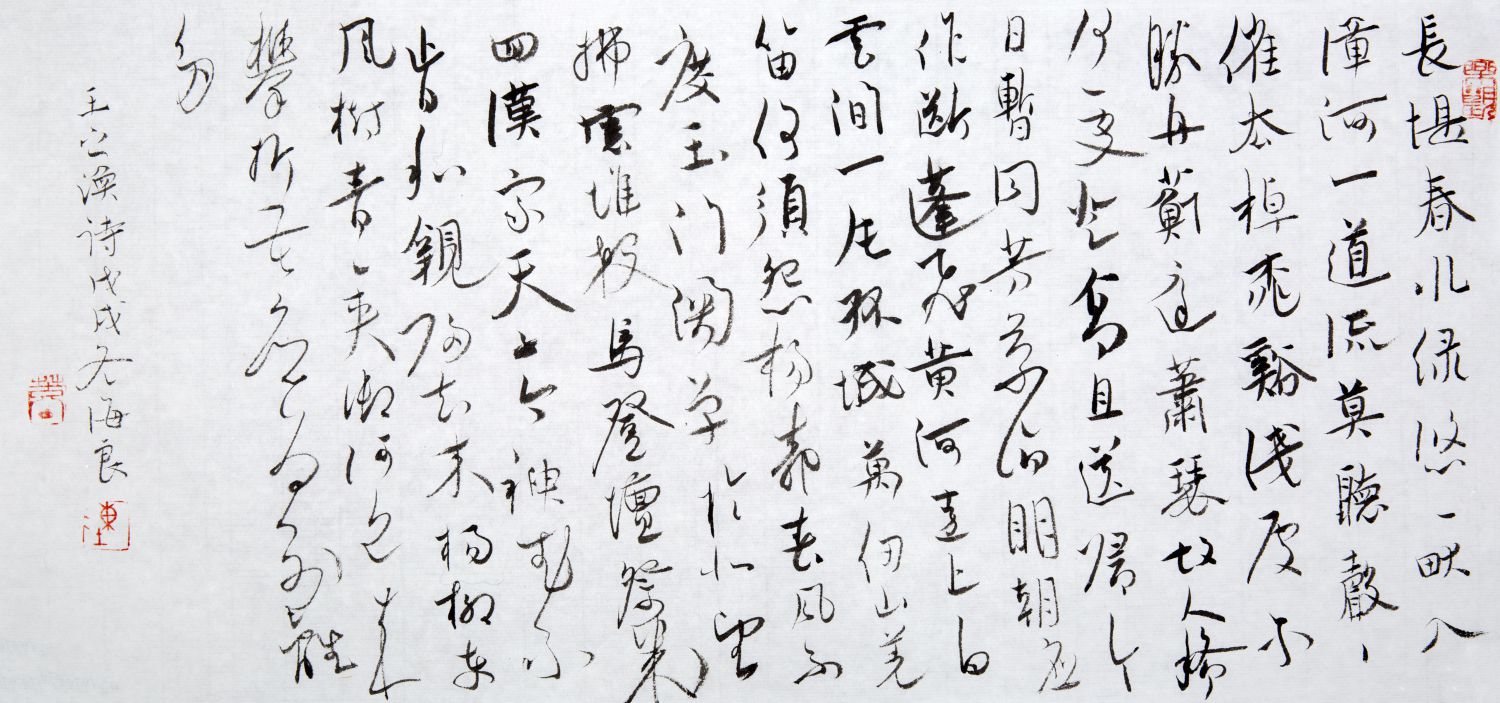 長堤春水綠悠〻畎入
漳河一道流莫聽聲〻
催去棹桃谿淺處不
勝舟薊庭蕭瑟故人稀
何處登高且送歸今
日暫同芳菊酒明朝應
作斷蓬飛黃河遠上白
雲間一片孤城萬仞山羌
笛何須怨楊柳春風不
度玉門關單于北望
拂雲堆殺馬登壇祭幾
回漢家天子今神武不
肯和親歸去來楊柳東
風樹青〻夾御河近來
攀折苦應為別離
多
王之渙詩戊戌冬海良